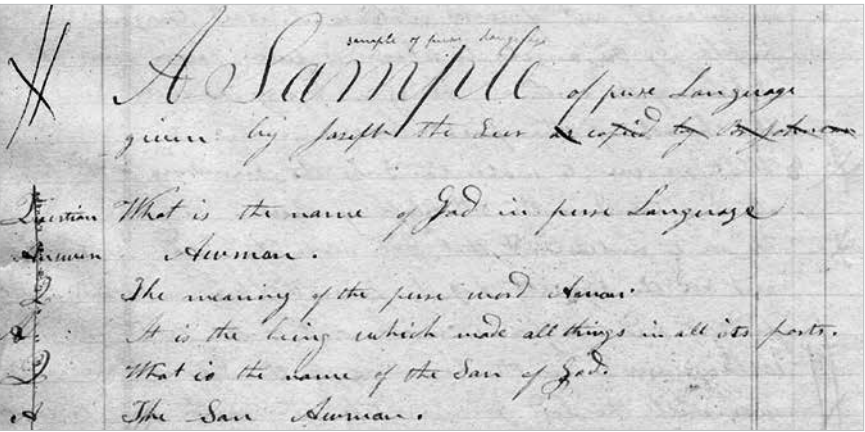 sample of pure Language
A Sample of pure Language
given by Joseph the Seer as copied by Br Johnson
Question What is the name of God in pure Language
Answer Awman.
Q The meaning of the pure word
A It is the being which made all things in all its parts.
Q What is the name of the Son of God.
A The Son Awman.